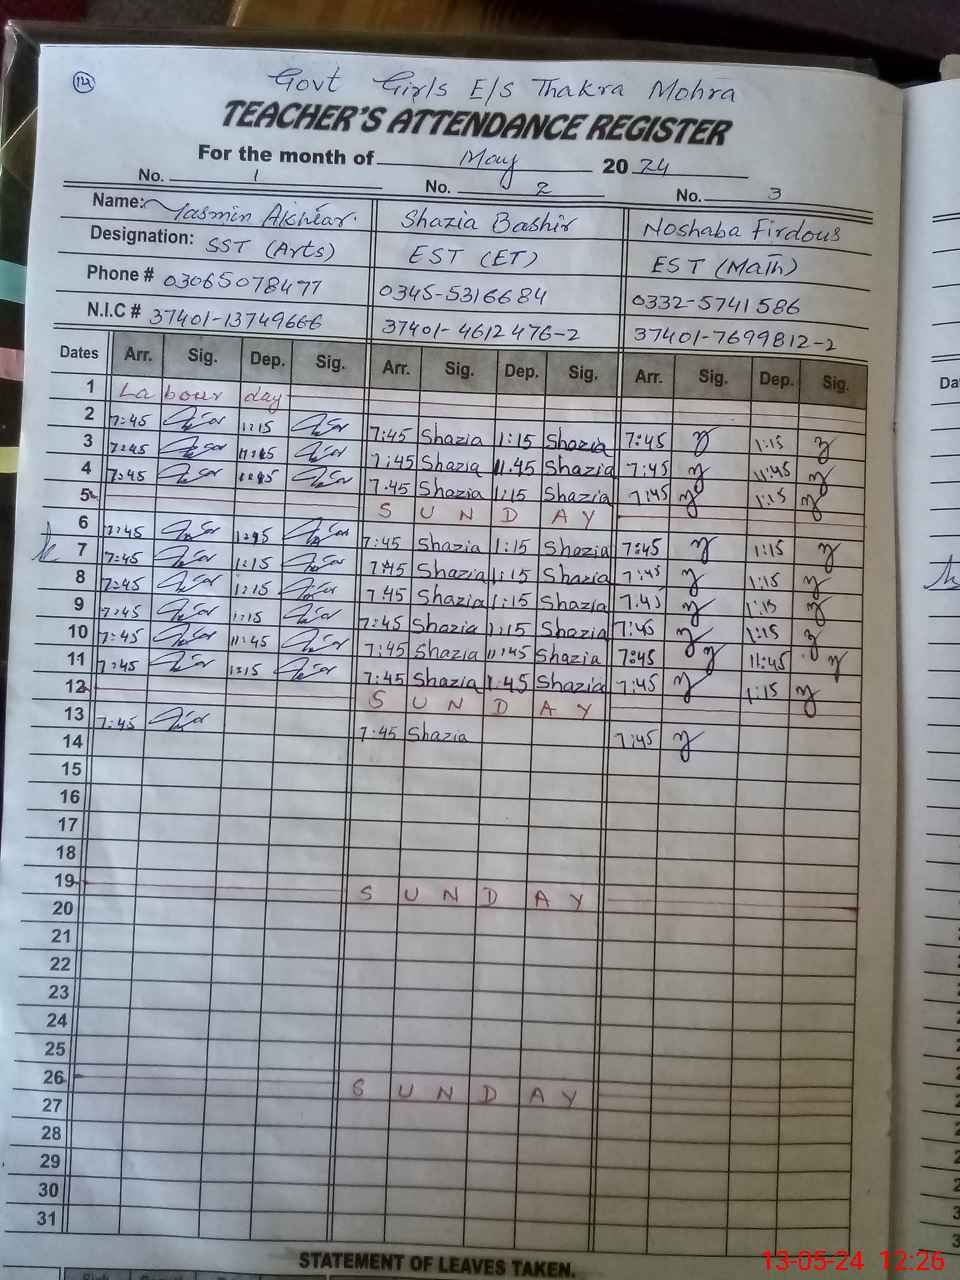 122
Govt Girls E/S Thakra Mohra
TEACHER'S ATTENDANCE REGISTER
For the month of May 2024
No. 1 No. 2 No. 3
Name: Yasmin Akhtar. Shazia Bashir Noshaba Firdous
Designation: SST (Arts) EST (ET) EST (Math)
Phone # 03065078477 0345-5316684 0332-5741586
N.I.C # 37401-13749666 37401-4612476-2 37401-7699812-2
Dates Arr. Sig. Dep. Sig. Arr. Sig. Dep. Sig. Arr. Sig. Dep. Sig.
1 Labour day
2 7:45 1:15 7:45 Shazia 1:15 Shazia 7:45 1:15
3 7:45 11:45 7:45 Shazia 11.45 Shazia 7:45 11:45
4 7:45 7.45 Shazia 1:15 Shazia 7:45 1:15
5 SUNDAY
6 7:45 7:45 Shazia 1:15 Shazia 7:45 1:15
7 7:45 1:15 7:45 Shazia 1:15 Shazia 7:45 1:15
8 7:45 1:15 7.45 Shazia 1:15 Shazia 7.45 1:15
9 7:45 1:15 7:45 Shazia 1:15 Shazia 7:45 1:15
10 7:45 11:45 7:45 Shazia 11:45 Shazia 7:45 11:45
11 7:45 1:15 7:45 Shazia 1.45 Shazia 7:45 1:15
12 SUNDAY
13 7:45 7:45 Shazia 7:45
14
15
16
17
18
19 SUNDAY
20
21
22
23
24
25
26 SUNDAY
27
28
29
30
31
STATEMENT OF LEAVES TAKEN.
13-05-24 12:26